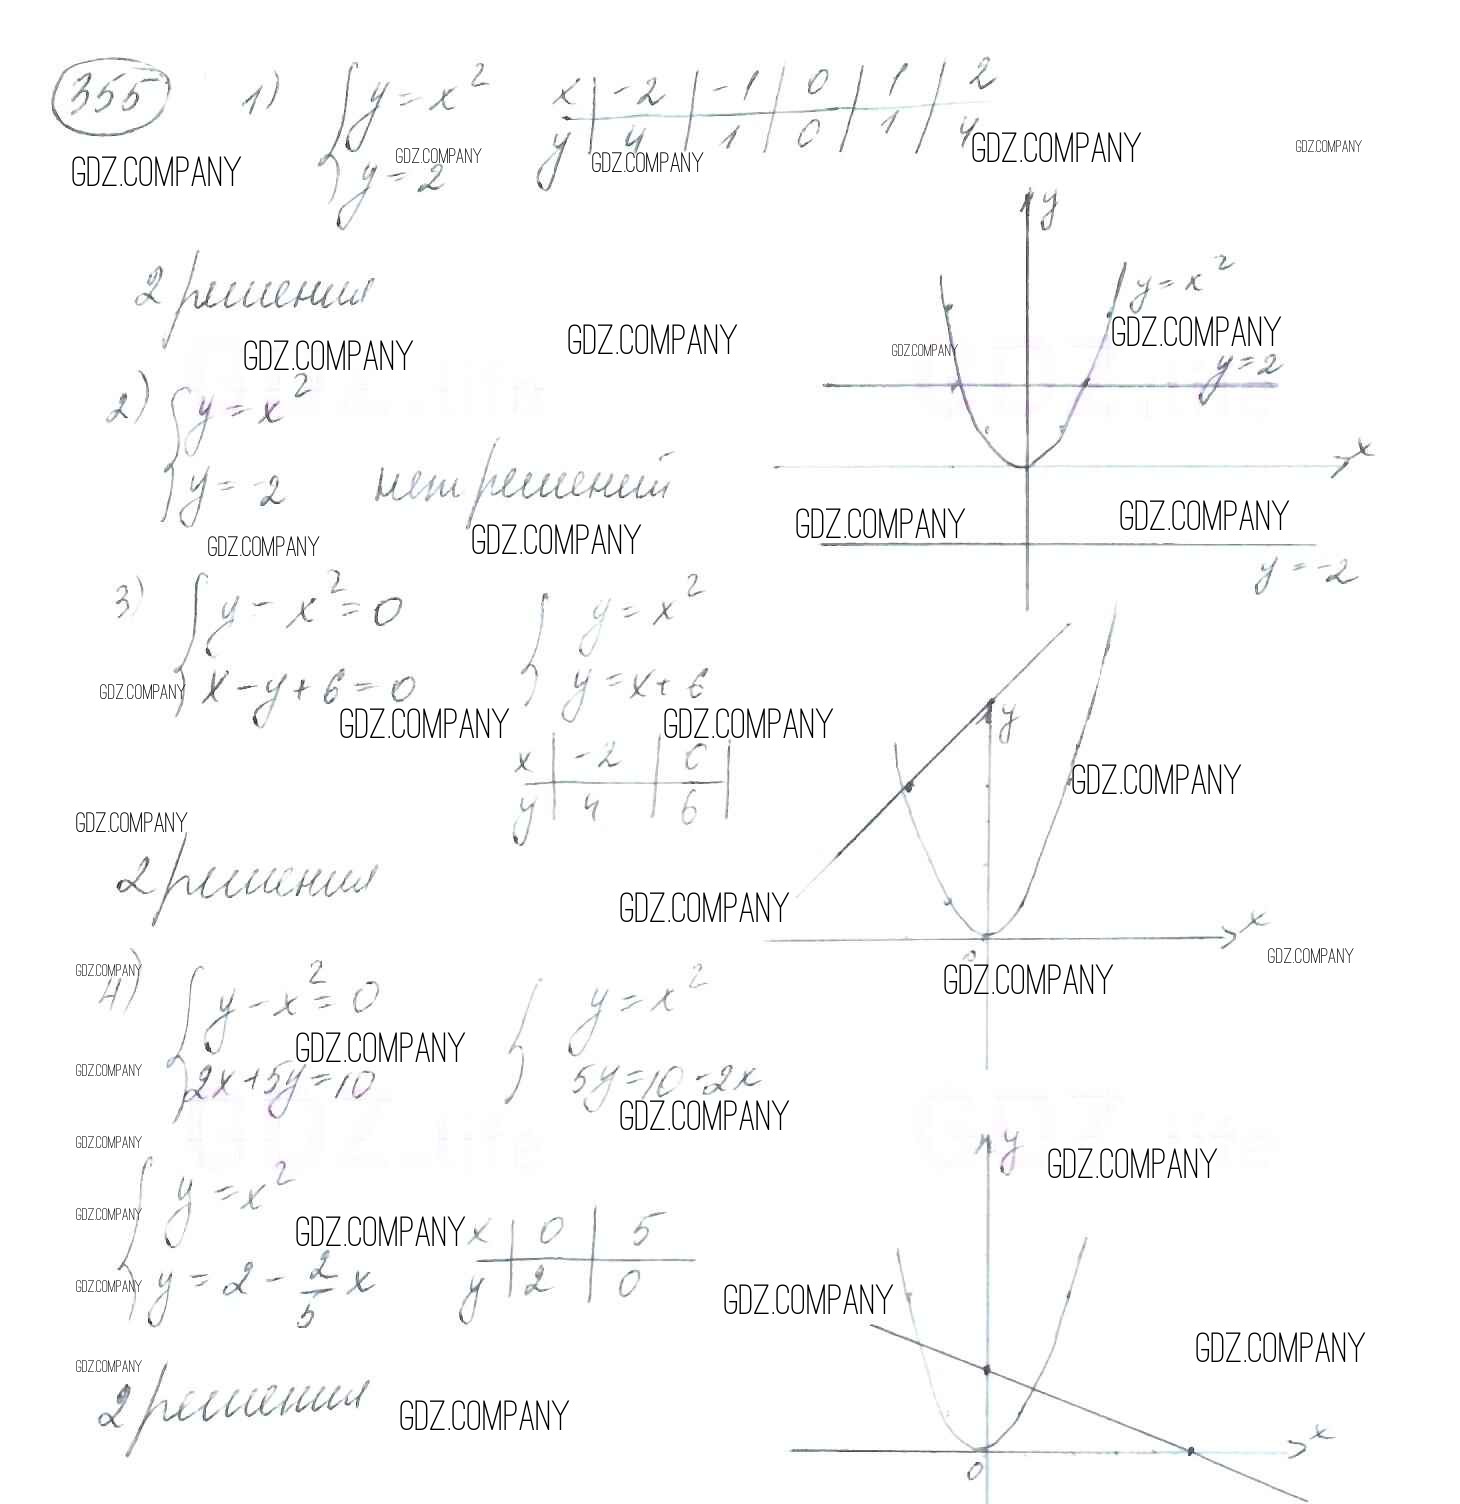 355 1) { y = x² x | -2 | -1 | 0 | 1 | 2
y = 2 y | 4 | 1 | 0 | 1 | 4
GDZ.COMPANY GDZ.COMPANY GDZ.COMPANY GDZ.COMPANY GDZ.COMPANY
y
2 решения
y = x²
GDZ.COMPANY GDZ.COMPANY GDZ.COMPANY GDZ.COMPANY
y = 2
2) { y = x²
x
y = -2 нет решений
GDZ.COMPANY GDZ.COMPANY
GDZ.COMPANY GDZ.COMPANY
y = -2
3) { y - x² = 0 { y = x²
x - y + 6 = 0 y = x + 6
GDZ.COMPANY GDZ.COMPANY GDZ.COMPANY
y
x | -2 | 0 |
y | 4 | 6 |
GDZ.COMPANY
GDZ.COMPANY
2 решения
GDZ.COMPANY
x
0
GDZ.COMPANY GDZ.COMPANY GDZ.COMPANY
4) { y - x² = 0 { y = x²
GDZ.COMPANY
2x + 5y = 10 5y = 10 - 2x
GDZ.COMPANY GDZ.COMPANY
GDZ.COMPANY
y
GDZ.COMPANY
{ y = x²
GDZ.COMPANY GDZ.COMPANY x | 0 | 5
y = 2 - 2/5 x y | 2 | 0
GDZ.COMPANY GDZ.COMPANY
GDZ.COMPANY
GDZ.COMPANY
2 решения
GDZ.COMPANY
x
0